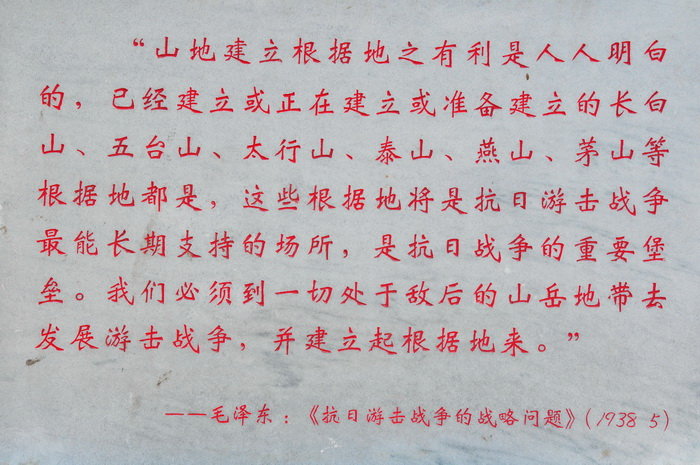 “山地建立根据地之有利是人人明白
的，已经建立或正在建立或准备建立的长白
山、五台山、太行山、泰山、燕山、茅山等
根据地都是，这些根据地将是抗日游击战争
最能长期支持的场所，是抗日战争的重要堡
垒。我们必须到一切处于敌后的山岳地带去
发展游击战争，并建立起根据地来。”
——毛泽东：《抗日游击战争的战略问题》(1938 5)